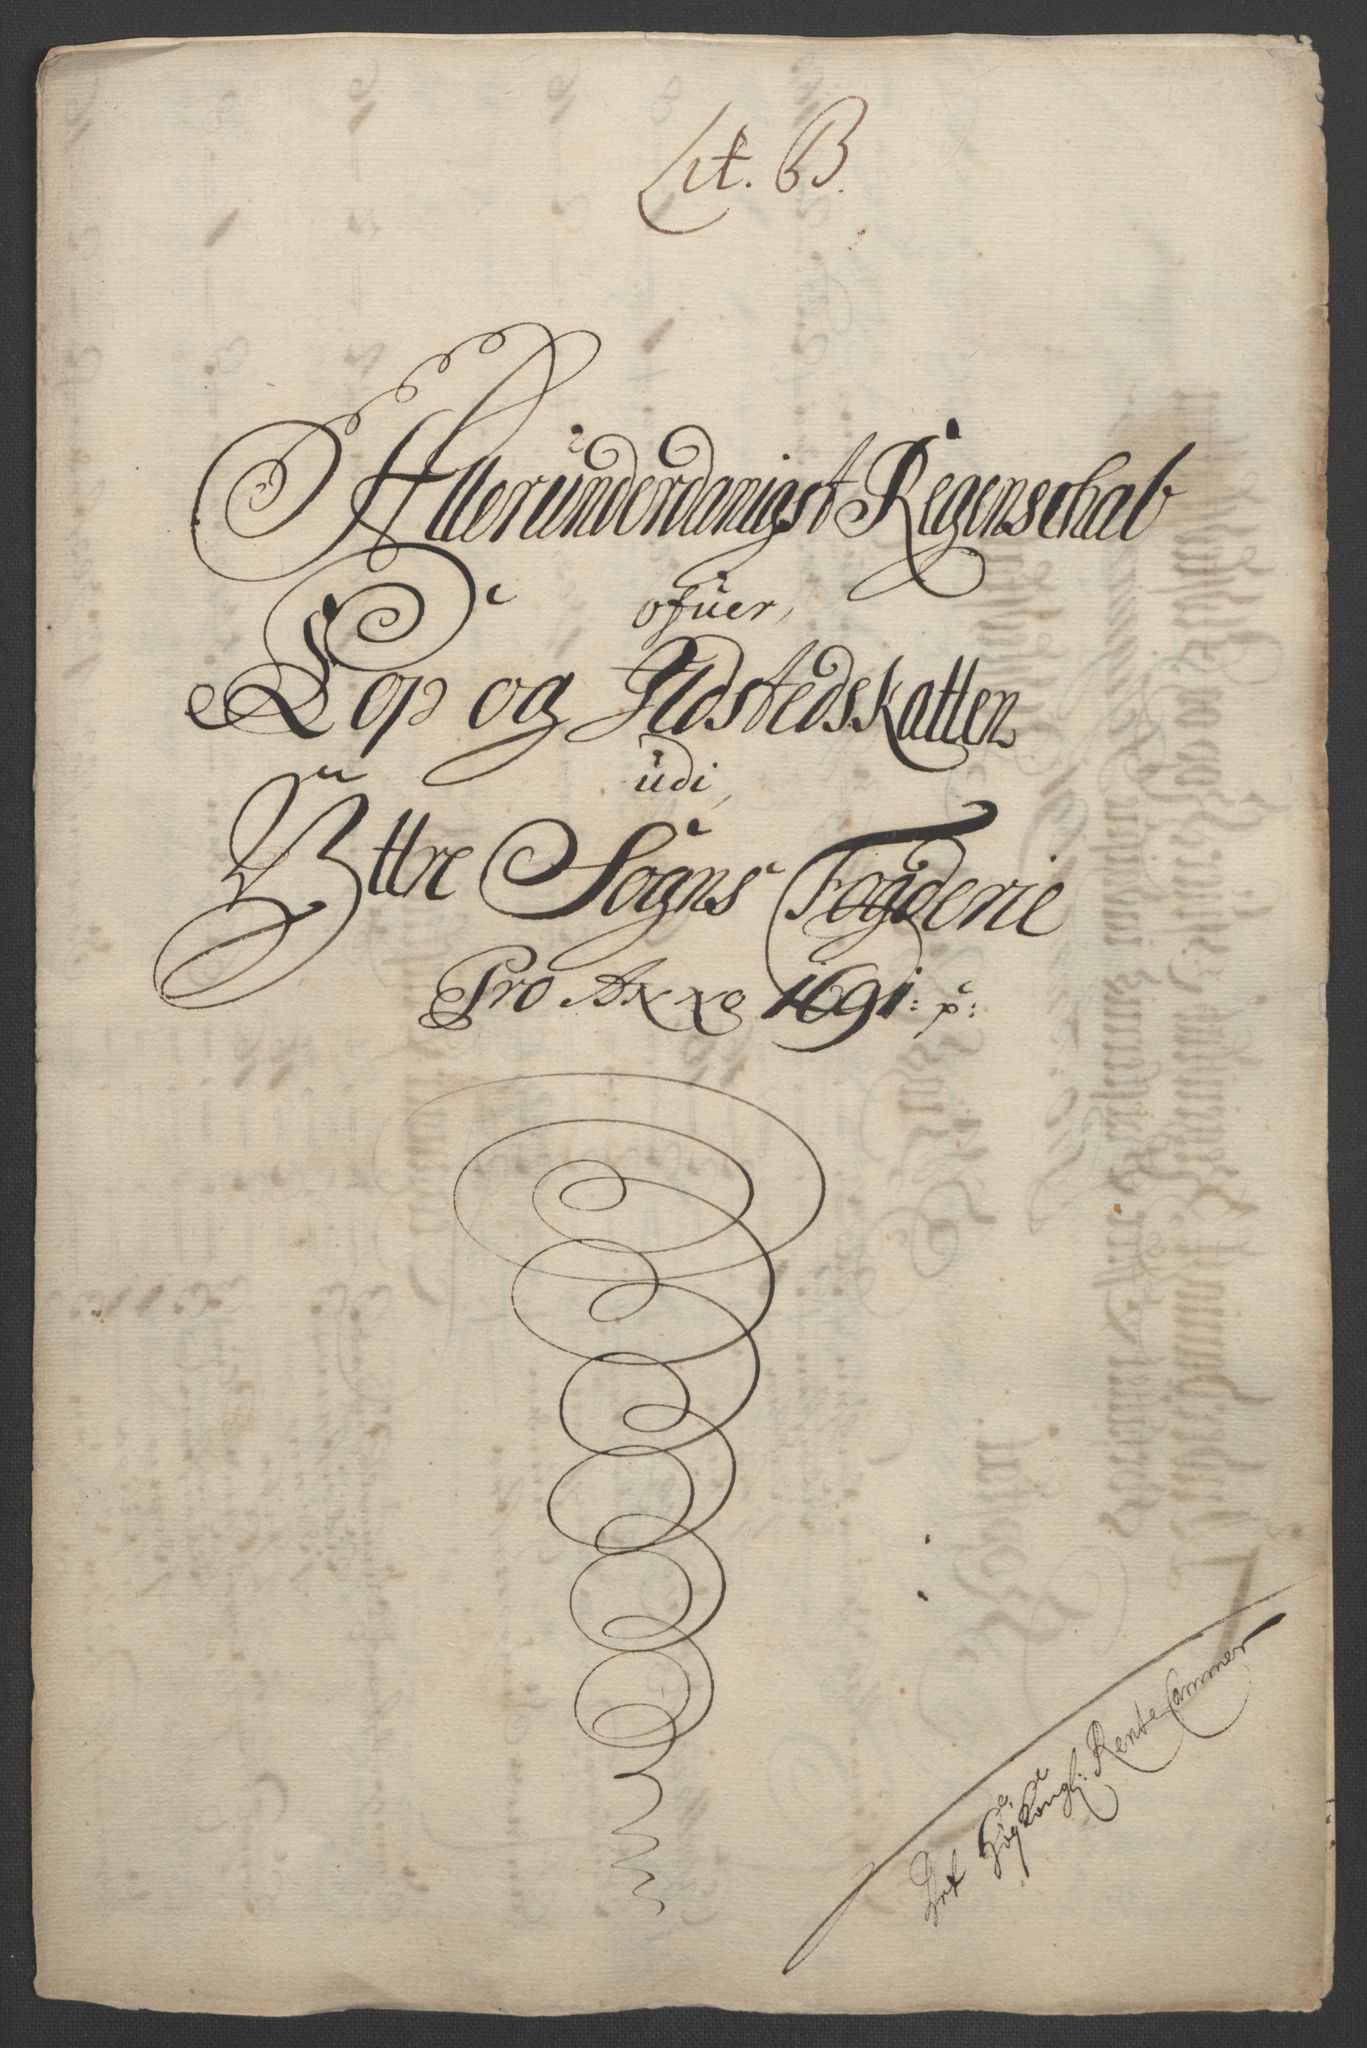 Lit. B.
Allerunderdanigst Regenschab
ofuer,
Kop og Ildstedskatten
udi,
Yttre Sogns Fogderie
Pro Anno 1691:
Rente Cammer